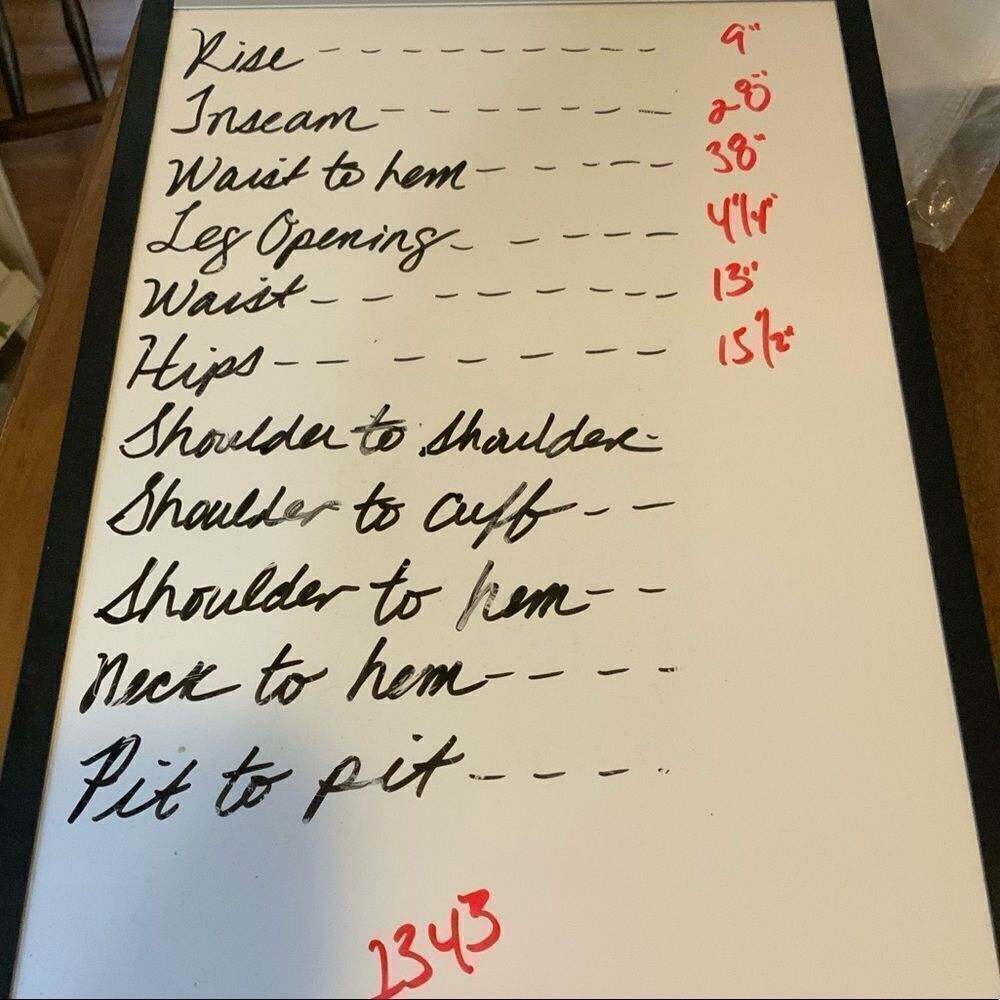 Rise - - - - - - - - - 9"
Inseam - - - - - - - 28"
Waist to hem - - - - - - 38"
Leg Opening - - - - - 4"1/4"
Waist - - - - - - - - 13"
Hips - - - - - - - 15 1/2"
Shoulder to shoulder -
Shoulder to cuff - - -
Shoulder to hem - - -
Neck to hem - - - - -
Pit to pit - - - - -
1343